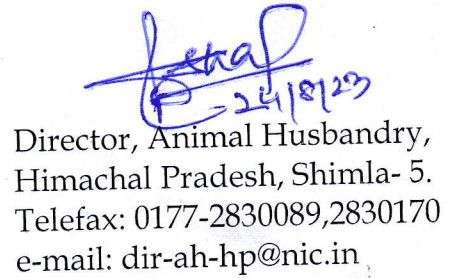 24/8/23
Director, Animal Husbandry,
Himachal Pradesh, Shimla- 5.
Telefax: 0177-2830089,2830170
e-mail: dir-ah-hp@nic.in